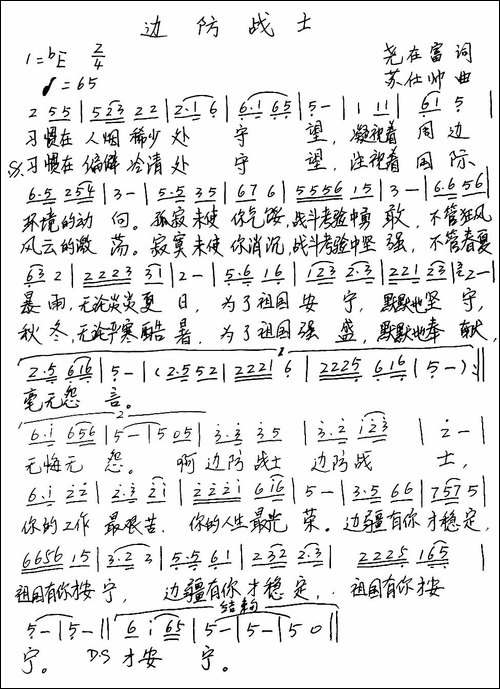 边防战士
1=♭E 2/4
尧在富 词
♩=65
苏仕帅 曲
2 55 | 523 22 | 2·1 6 | 6·1 65 | 5 - | 1 11 | 61 5 |
习惯在 人烟 稀少 处 守 望, 凝视着 周 边
习惯在 偏僻 冷清 处 守 望, 注视着 国 际
6·5 254 | 3 - | 5·5 35 | 67 6 | 5556 15 | 3 - | 6·6 56 |
环境的动 向。孤寂未使 你气馁, 战斗考验中勇 敢, 不管狂风
风云的激 荡。寂寞未使 你消沉, 战斗考验中坚 强, 不管春夏
63 2 | 2223 31 | 2 - | 5·6 16 | 123 2·3 | 221 23 | 2 - |
暴雨, 无论炎炎夏 日, 为了祖国 安 宁, 默默地坚 守,
秋冬, 无论严寒酷 暑, 为了祖国 强 盛, 默默地奉 献,
2·5 616 | 5 - | (2·552 | 2221 6 | 2225 616 | (5 -) :||
毫无怨 言。
2
6·1 656 | 5 - | 505 | 3·3 35 | 3·2 123 | 2 - |
无悔无 怨。 啊 边防战士 边防战 士,
6·1 22 | 2·3 21 | 2221 616 | 5 - | 3·5 66 | 7575 |
你的工作 最艰苦, 你的人生最光 荣。边疆有你 才稳定,
6656 15 | 3·2 3 | 5·5 61 | 232 2·3 | 2225 165 |
祖国有你才安 宁, 边疆有你 才稳定, 祖国有你才安
结构
5 - | 5 - || 6 1 65 | 5 - | 5 - | 5 0 ||
宁。 D.S 才安 宁。